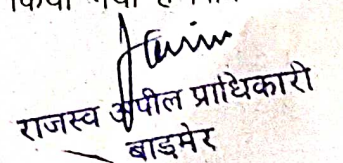 किया गया
राजस्व अपील प्राधिकारी
बाड़मेर